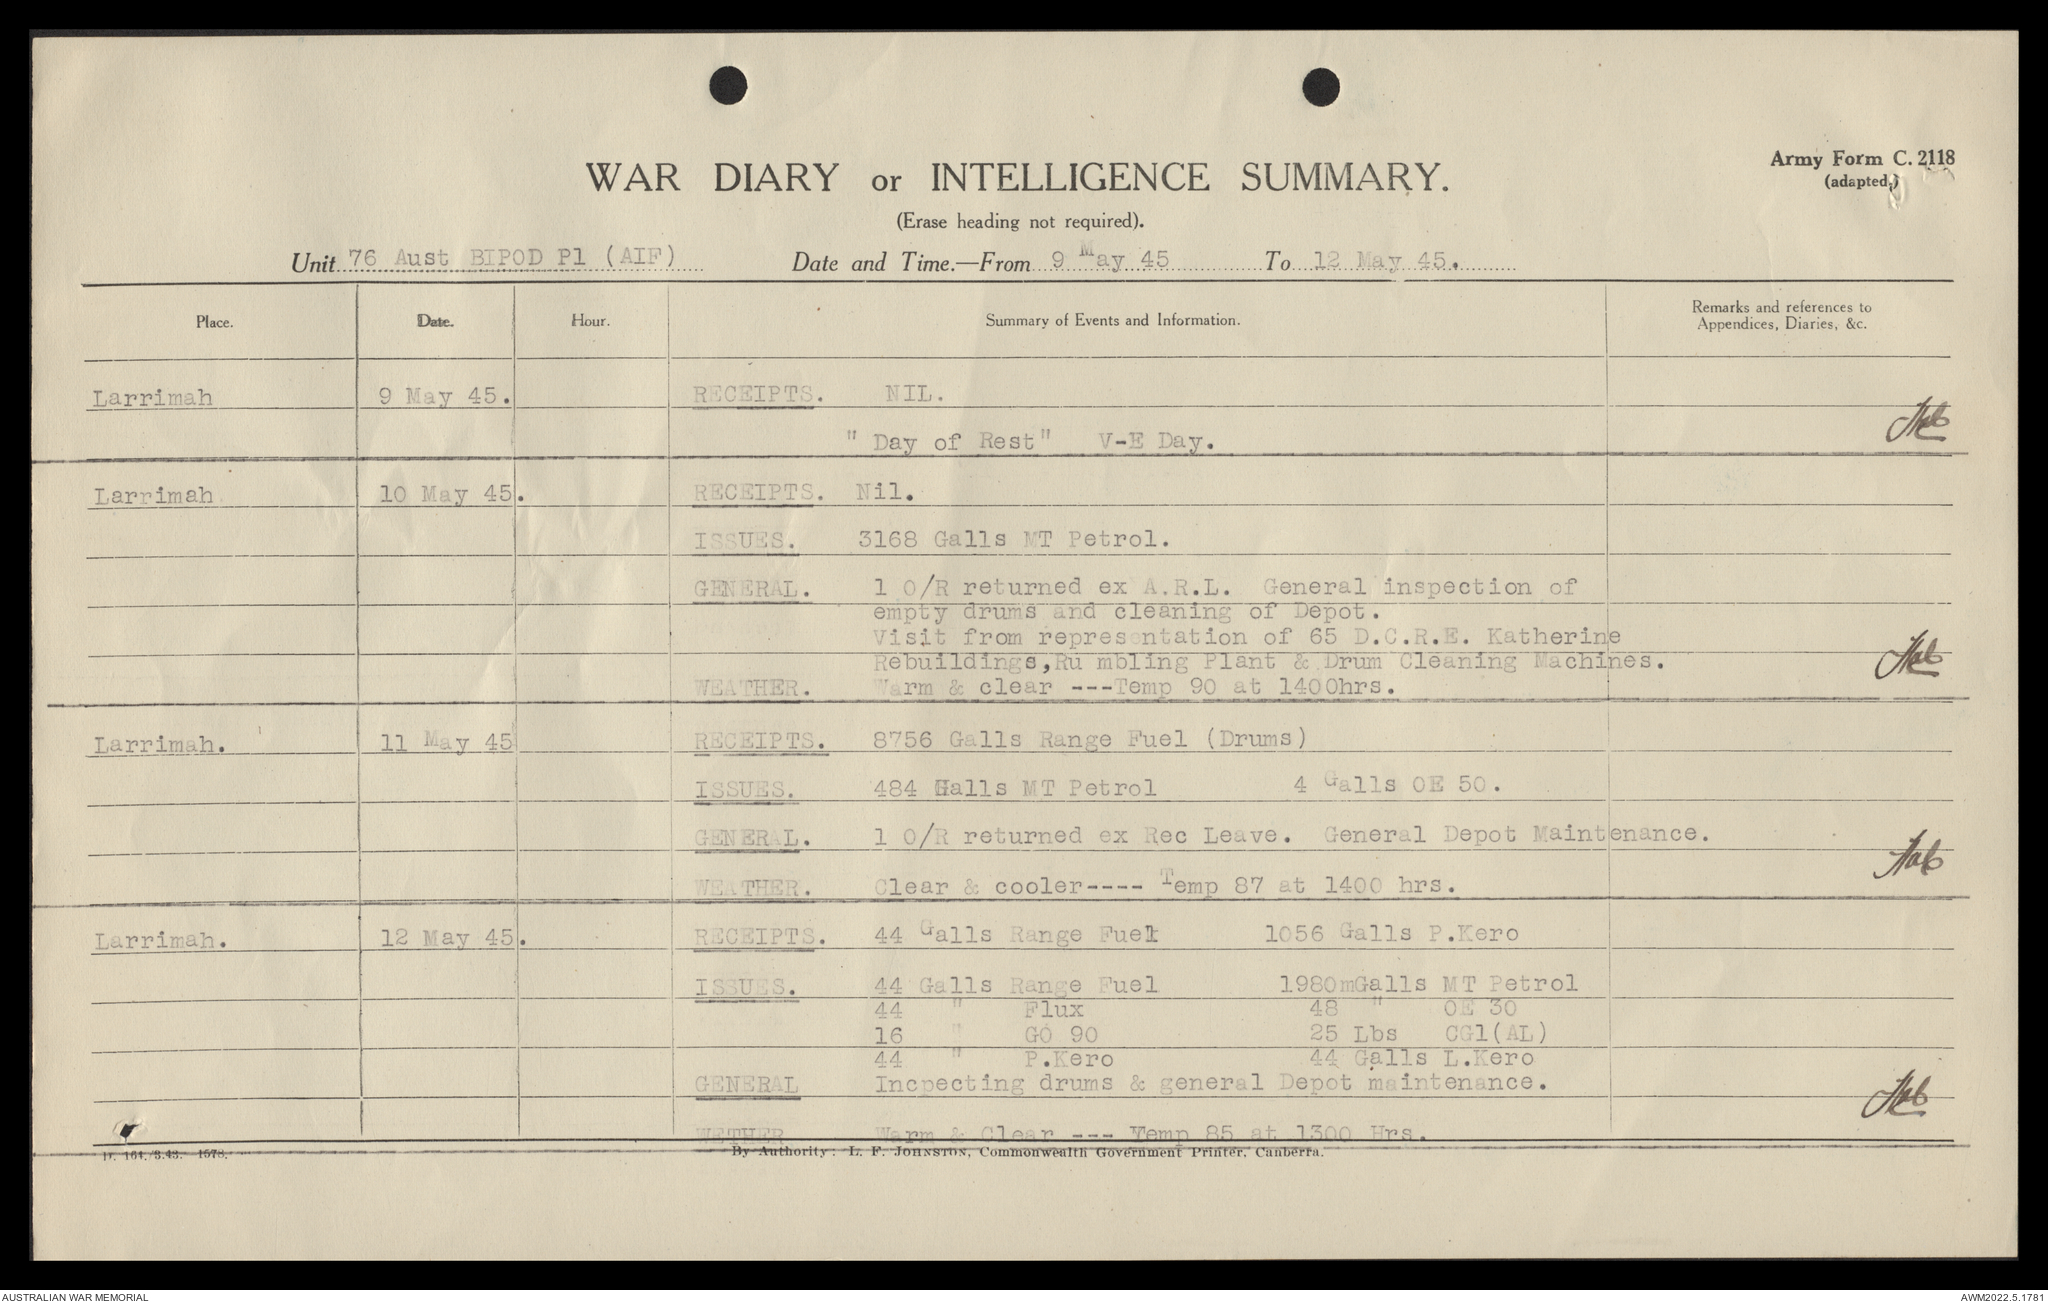 WAR DIARY or INTELLIGENCE SUMMARY.
Army Form C. 2118
(adapted.)
(Erase heading not required).
Unit 76 Aust BIPOD Pl (AIF) Date and Time.—From 9 May 45 To 12 May 45.
Place. Date. Hour. Summary of Events and Information. Remarks and references to
Appendices, Diaries, &c.
Larrimah 9 May 45. RECEIPTS. NIL.
" Day of Rest" V-E Day.
Larrimah 10 May 45. RECEIPTS. Nil.
ISSUES. 3168 Galls MT Petrol.
GENERAL. 1 O/R returned ex A.R.L. General inspection of
empty drums and cleaning of Depot.
Visit from representation of 65 D.C.R.E. Katherine
Rebuildings,Ru mbling Plant & Drum Cleaning Machines.
WEATHER. Warm & clear ---Temp 90 at 1400hrs.
Larrimah. 11 May 45 RECEIPTS. 8756 Galls Range Fuel (Drums)
ISSUES. 484 Galls MT Petrol 4 Galls OE 50.
GENERAL. 1 O/R returned ex Rec Leave. General Depot Maintenance.
WEATHER. Clear & cooler---- Temp 87 at 1400 hrs.
Larrimah. 12 May 45. RECEIPTS. 44 Galls Range Fuel 1056 Galls P.Kero
ISSUES. 44 Galls Range Fuel 1980mGalls MT Petrol
44 " Flux 48 " OE 30
16 " GO 90 25 Lbs CG1(AL)
44 " P.Kero 44 Galls L.Kero
GENERAL Incpecting drums & general Depot maintenance.
WETHER Warm & Clear --- Temp 85 at 1300 Hrs.
D. 164./3.43. 1578. By Authority: L. F. JOHNSTON, Commonwealth Government Printer, Canberra.
AUSTRALIAN WAR MEMORIAL AWM2022.5.1781